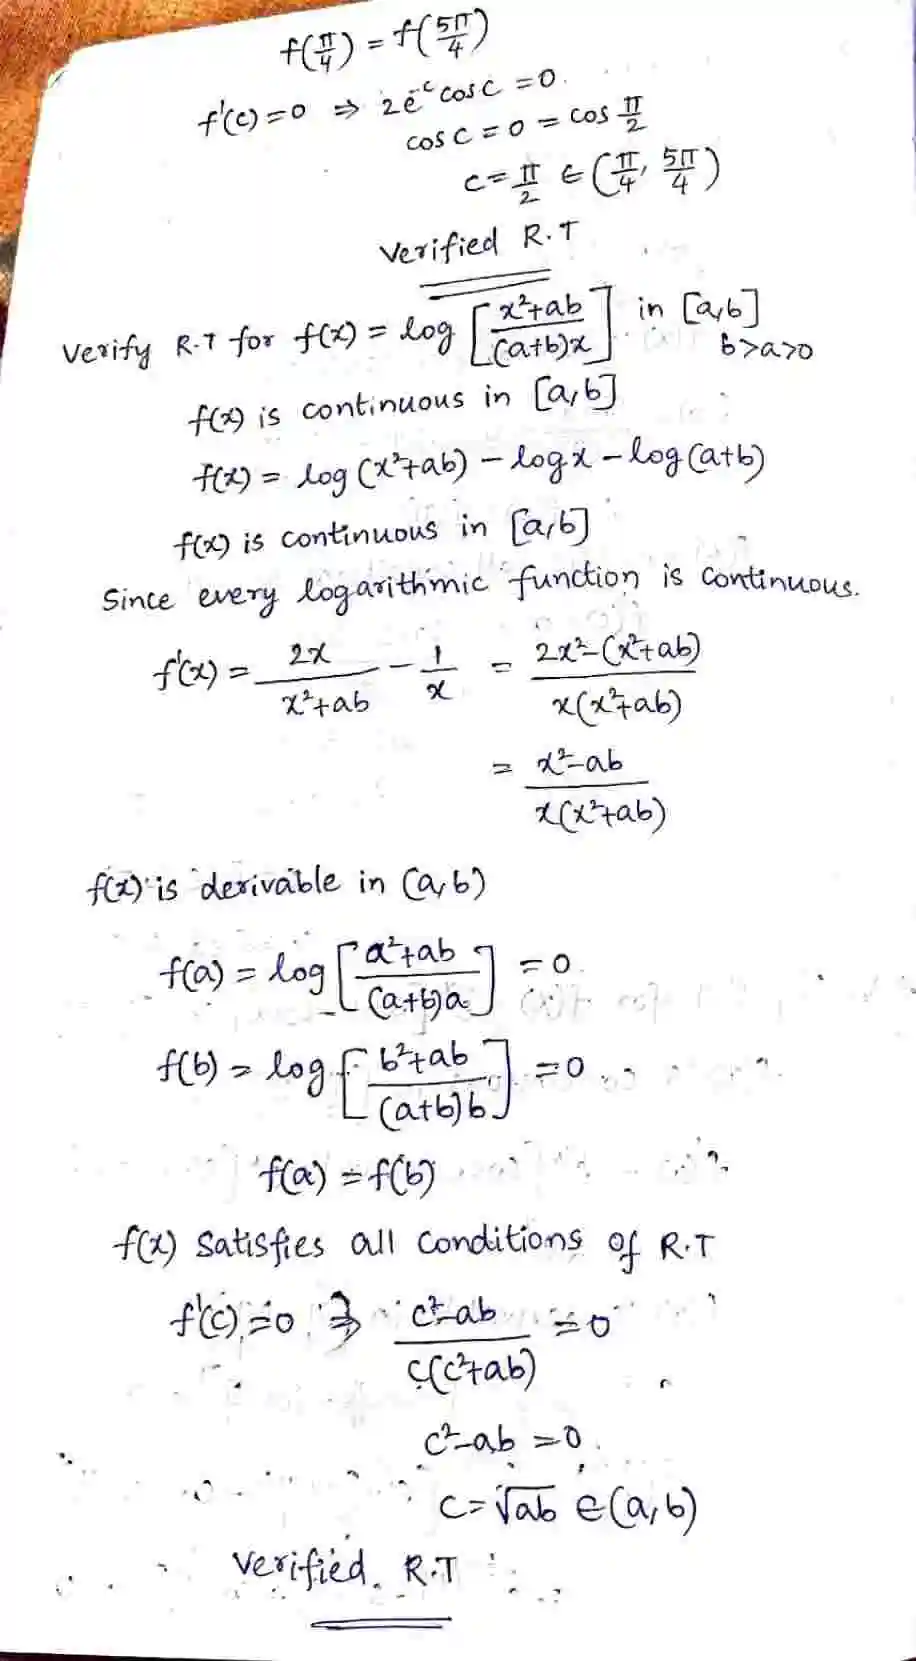 f(π/4) = f(5π/4)
f'(c)=0 ⇒ 2e^-c cos c = 0.
cos c = 0 = cos π/2
c = π/2 ∈ (π/4, 5π/4)
Verified R.T
Verify R.T for f(x) = log [(x²+ab)/((a+b)x)] in [a,b]
b>a>0
f(x) is continuous in [a,b]
f(x) = log (x²+ab) – log x – log (a+b)
f(x) is continuous in [a,b]
Since every logarithmic function is continuous.
f'(x) = 2x/(x²+ab) – 1/x = (2x²–(x²+ab))/(x(x²+ab))
= (x²–ab)/(x(x²+ab))
f(x) is derivable in (a,b)
f(a) = log [(a²+ab)/((a+b)a)] = 0
f(b) = log [(b²+ab)/((a+b)b)] = 0
f(a) = f(b)
f(x) satisfies all conditions of R.T
f'(c)=0 ⇒ (c²–ab)/(c(c²+ab)) = 0
c²–ab = 0.
c = √ab ∈ (a,b)
Verified R.T